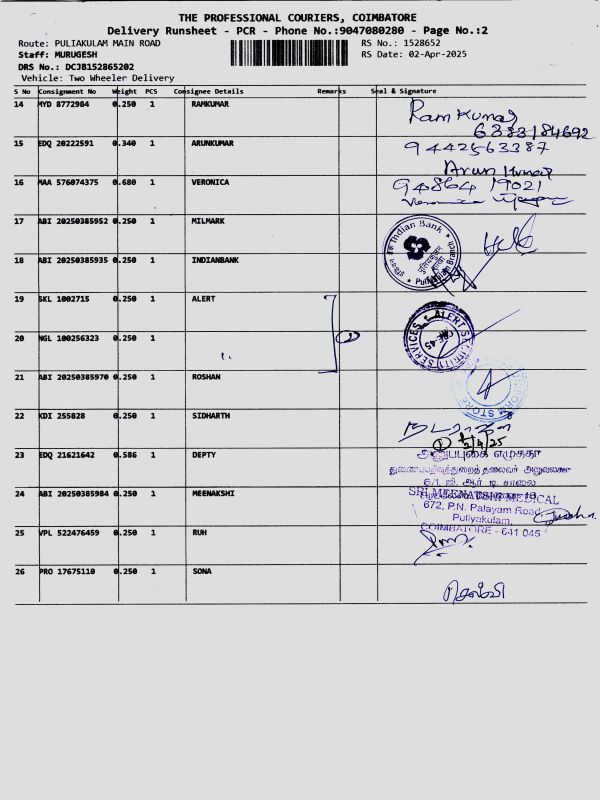 THE PROFESSIONAL COURIERS, COIMBATORE
Delivery Runsheet - PCR - Phone No.:9047080280 - Page No.:2
Route: PULIAKULAM MAIN ROAD RS No.: 1528652
Staff: MURUGESH RS Date: 02-Apr-2025
DRS No.: DCJB152865202
Vehicle: Two Wheeler Delivery
S No Consignment No Weight PCS Consignee Details Remarks Seal & Signature
14 MYD 8772984 0.250 1 RAMKUMAR Ram Kumar
6383184692
15 EDQ 20222591 0.340 1 ARUNKUMAR 9442563387
Arun Kumar
16 MAA 576074375 0.680 1 VERONICA 94864 19021
Veronica
17 ABI 20250385952 0.250 1 MILMARK
Indian Bank
18 ABI 20250385935 0.250 1 INDIANBANK
19 SKL 1002715 0.250 1 ALERT
ALERT SECURITY SERVICES
CBE-45
20 NGL 100256323 0.250 1 2
21 ABI 20250385970 0.250 1 ROSHAN
22 KDI 255828 0.250 1 SIDHARTH
23 EDQ 21621642 0.586 1 DEPTY
24 ABI 20250385984 0.250 1 MEENAKSHI
SRI MEENATSHI MEDICAL
672, P.N. Palayam Road,
Puliyakulam,
COIMBATORE - 641 045
25 VPL 522476459 0.250 1 RUH
26 PRO 17675110 0.250 1 SONA
செல்வி